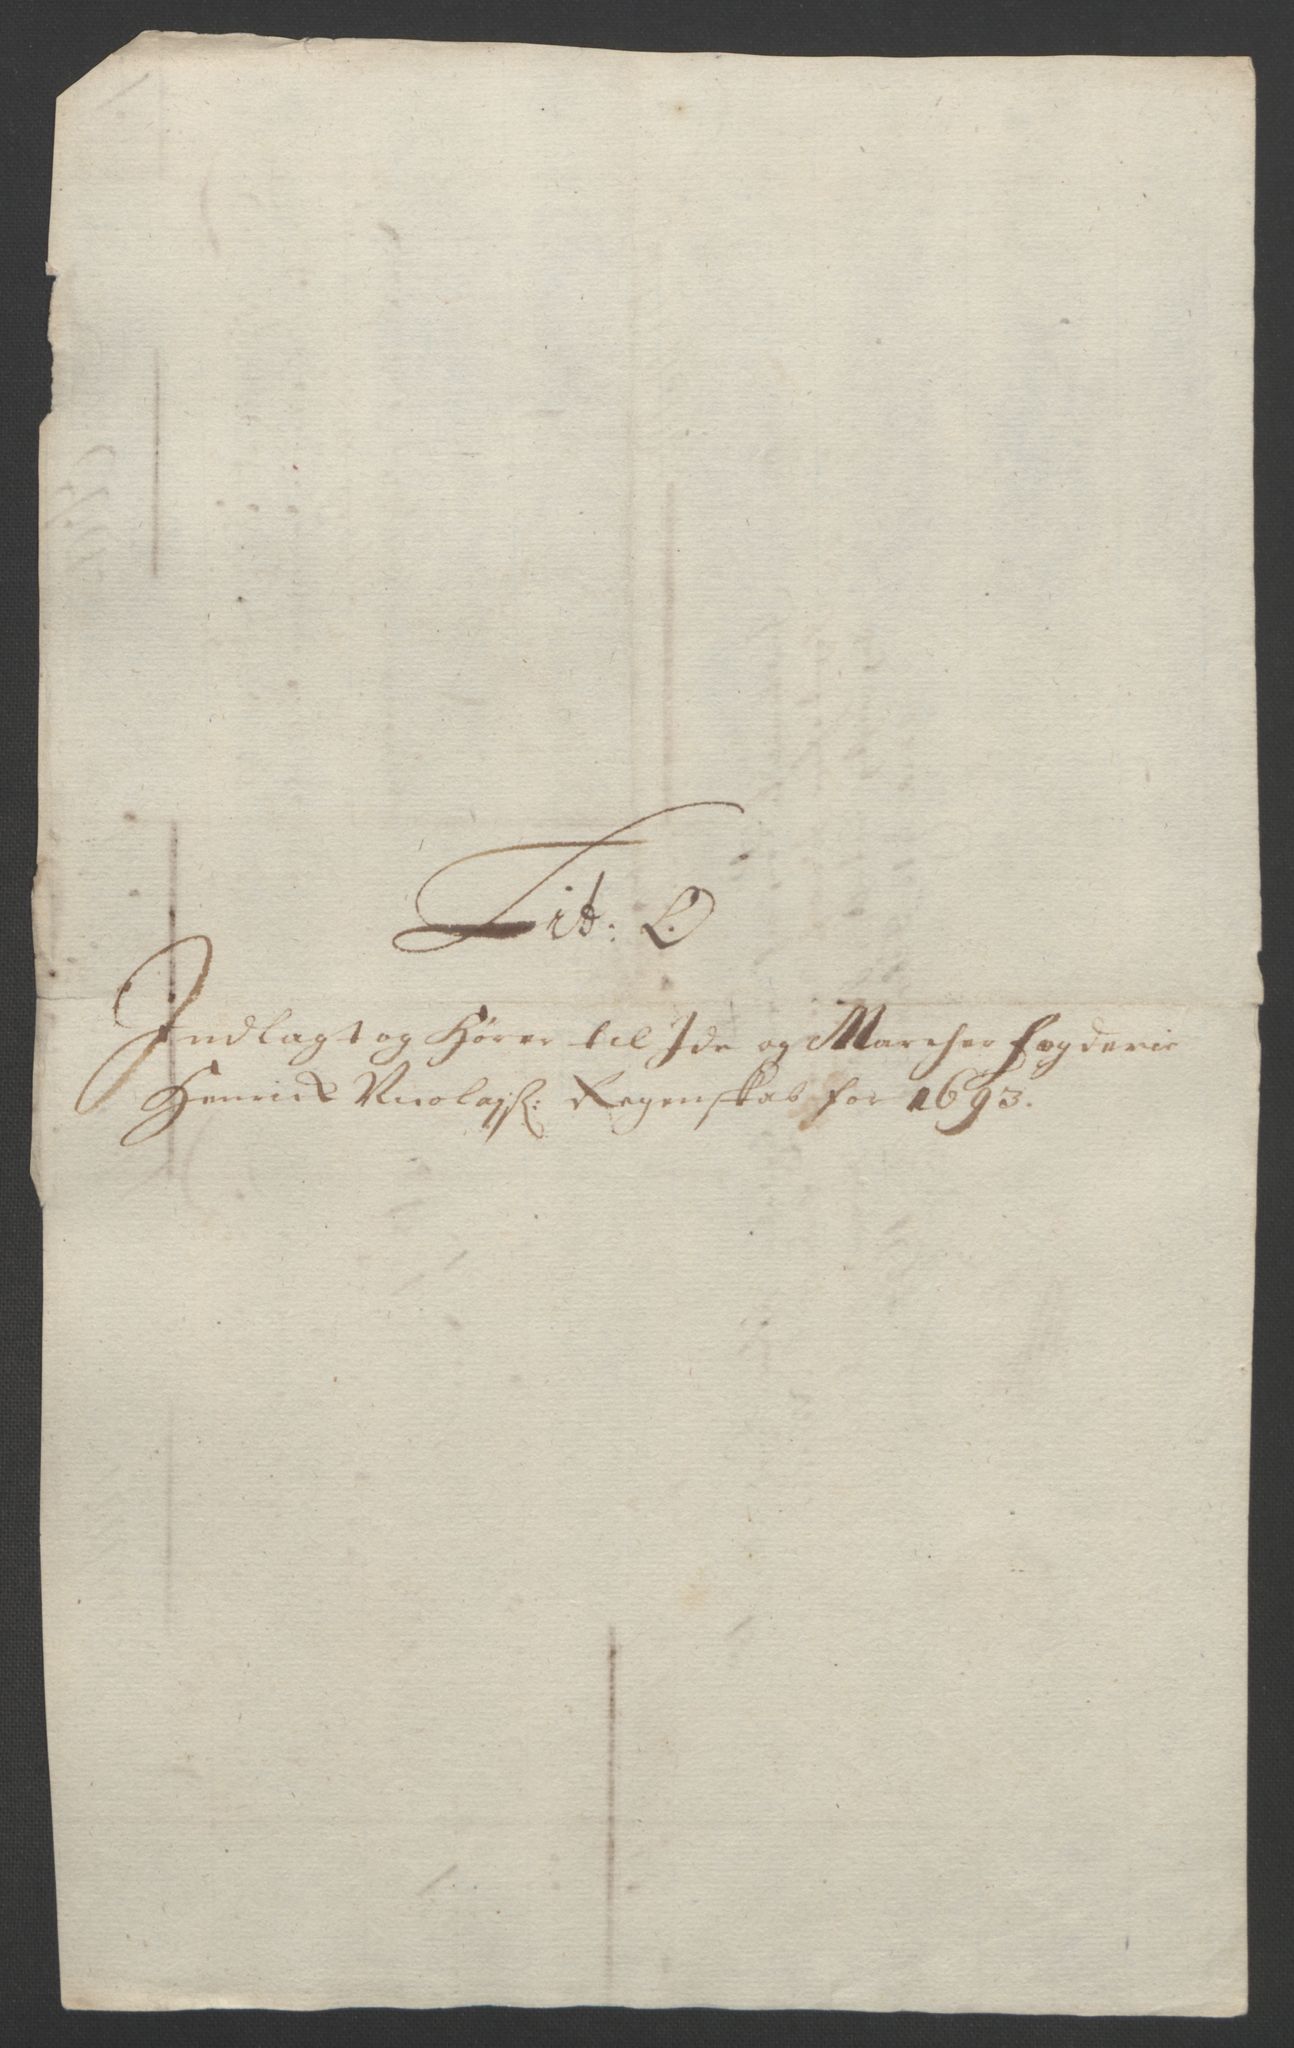 Lit: O
Indlagt og hörer til Ide og Marcher fogderie
Henrich Nicolajs: Regenskab for 1693.